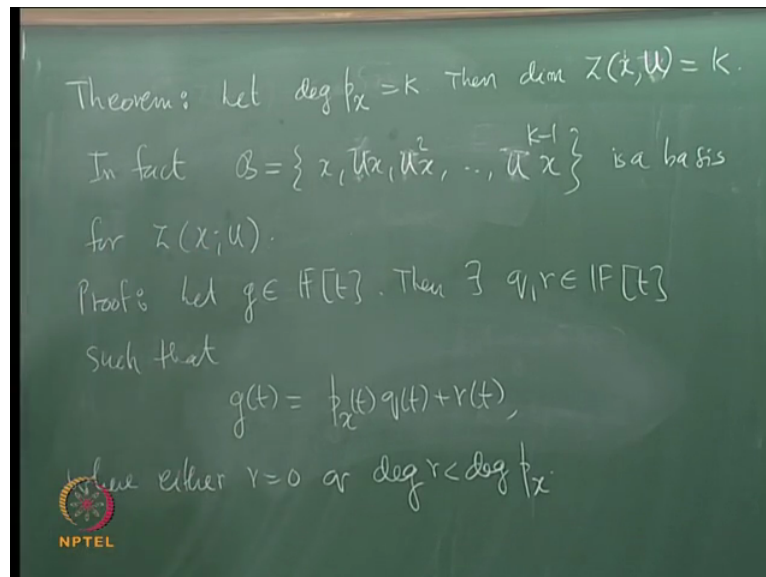 Theorem: Let deg p_x = K Then dim Z(x;U) = K.
In fact B = { x, Ux, U²x, .., U^{K-1}x } is a basis
for Z(x;U).
Proof: Let g ∈ F[t]. Then ∃ q, r ∈ F[t]
such that
g(t) = p_x(t) q(t) + r(t),
where either r = 0 or deg r < deg p_x.
NPTEL